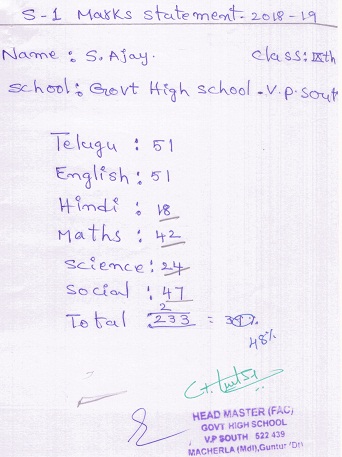 S-1 Marks statement-2018-19
Name : S. Ajay. class: IXth
school: Govt High school-V.P. South
Telugu : 51
English : 51
Hindi : 18
Maths : 42
science : 24
social : 47
2
Total 233 =
48%
HEAD MASTER (FAC)
GOVT HIGH SCHOOL
V.P SOUTH 522 439
MACHERLA (Mdl),Guntur (Dt)